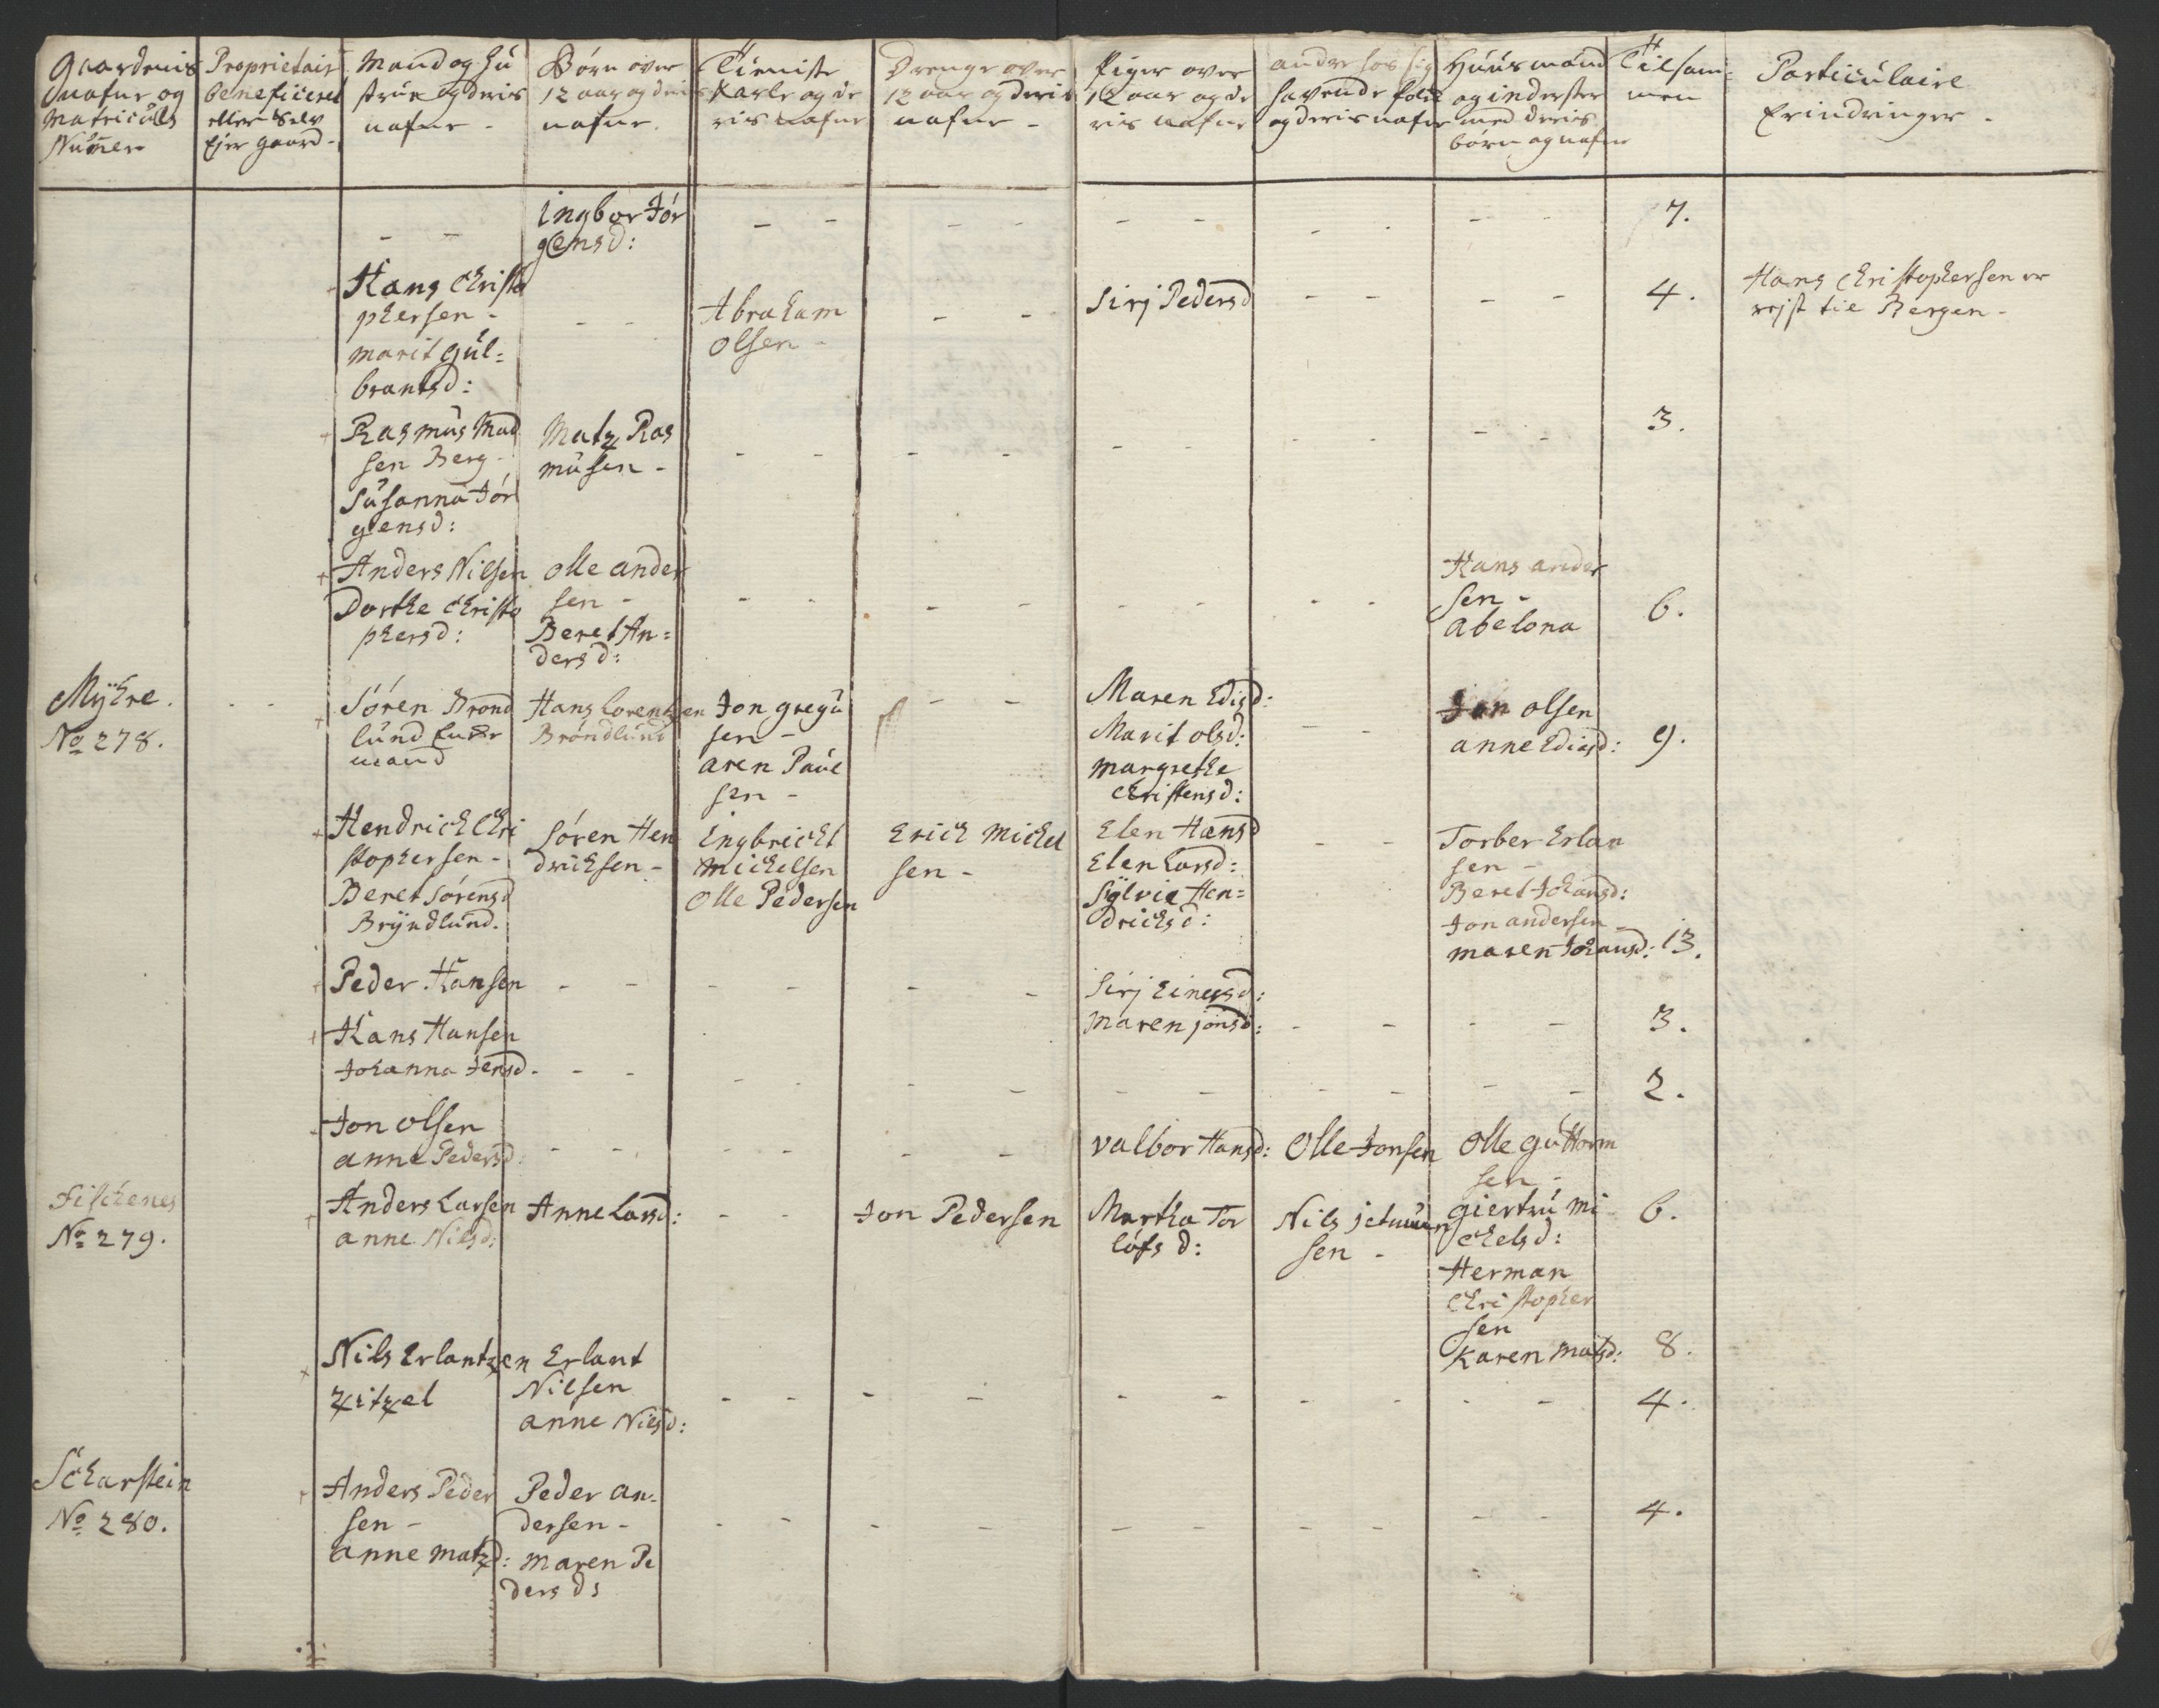 Gaardenis
nafne og
Matriculs
Numer
Proprietair
beneficeret
eller Selv
Ejer gaard -
Mand og Hu
strue og deris
nafne -
Børn over
12 aar og deris
nafne.
Tieniste
Karle og de
ris nafne
Drenge over
12 aar og deris
nafne -
Piger over
12 aar og de
ris nafne
andre hos sig
havende folk
og deris nafne
Huusmænd
og inderster
med deris
børn og nafne
Tilsam-
men
Particulaire
Erindringer -
- -
Ingbor Jör
gensd:
- -
- -
- -
- -
- -
7.
Hans Christo
phersen -
marit gul-
brantsd:
- -
Abraham
Olsen -
- -
Sirj Pedersd
- -
- -
4.
Hans Christophersen er
rejst til Bergen -
Rasmus Mad
sen Berg -
Susanna Jör
gensd:
Matz Ras
musen -
- -
- -
- -
- -
- -
3.
Anders Nilsen
Dorthe Christo
phersd:
Olle ander
sen -
Beret An-
dersd:
- -
- -
- -
- -
Hans ander
sen -
abelona
6.
Myhre.
No 278.
- -
Søren Brønd
lund
mand
Hans Lorentzen
Brøndlund
Jon gregu
sen -
aren Paul
sen -
- -
Maren Edisd:
Marit olsd:
margrethe
Christensd:
- -
Jon olsen
anne Edisd:
9.
Hendrich Chri
stophersen -
Beret Sørensd
Bryndlund.
Søren Hen
drichsen -
Engbricht
Michelsen
Olle Pedersen
Erich Michel
sen -
Elen Hansd
Elen Larsd:
Sylvie Hen-
drichsd:
- -
Torber Erlan
sen -
Beret Johansd:
Jon andersen -
maren Johansd:
13.
Peder Hansen
- -
- -
- -
Sirj Einersd:
Maren Jonsd:
- -
- -
3.
Hans Hansen
Johanna Jensd.
- -
- -
- -
- -
- -
- -
2.
Jon olsen
anne Pedersd:
- -
- -
- -
valbor Hansd:
Olle Jonsen
Olle guttorm
sen -
giertru mi
chelsd:
6.
Fischenes
No 279.
Anders Larsen
anne Nilsd:
Anne Larsd:
- -
Jon Pedersen
Martha Tor
løfs d:
Nils
sen -
Herman
Christopher
sen
Karen Matsd:
8.
Nils Erlantzen
Zitzel
Erlant
Nilsen
anne Nilsd:
- -
- -
- -
- -
- -
4.
Scharstein
No 280.
Anders Peder
sen -
anne matzd:
Peder an-
dersen -
maren Pe
dersd:
- -
- -
- -
- -
- -
4.